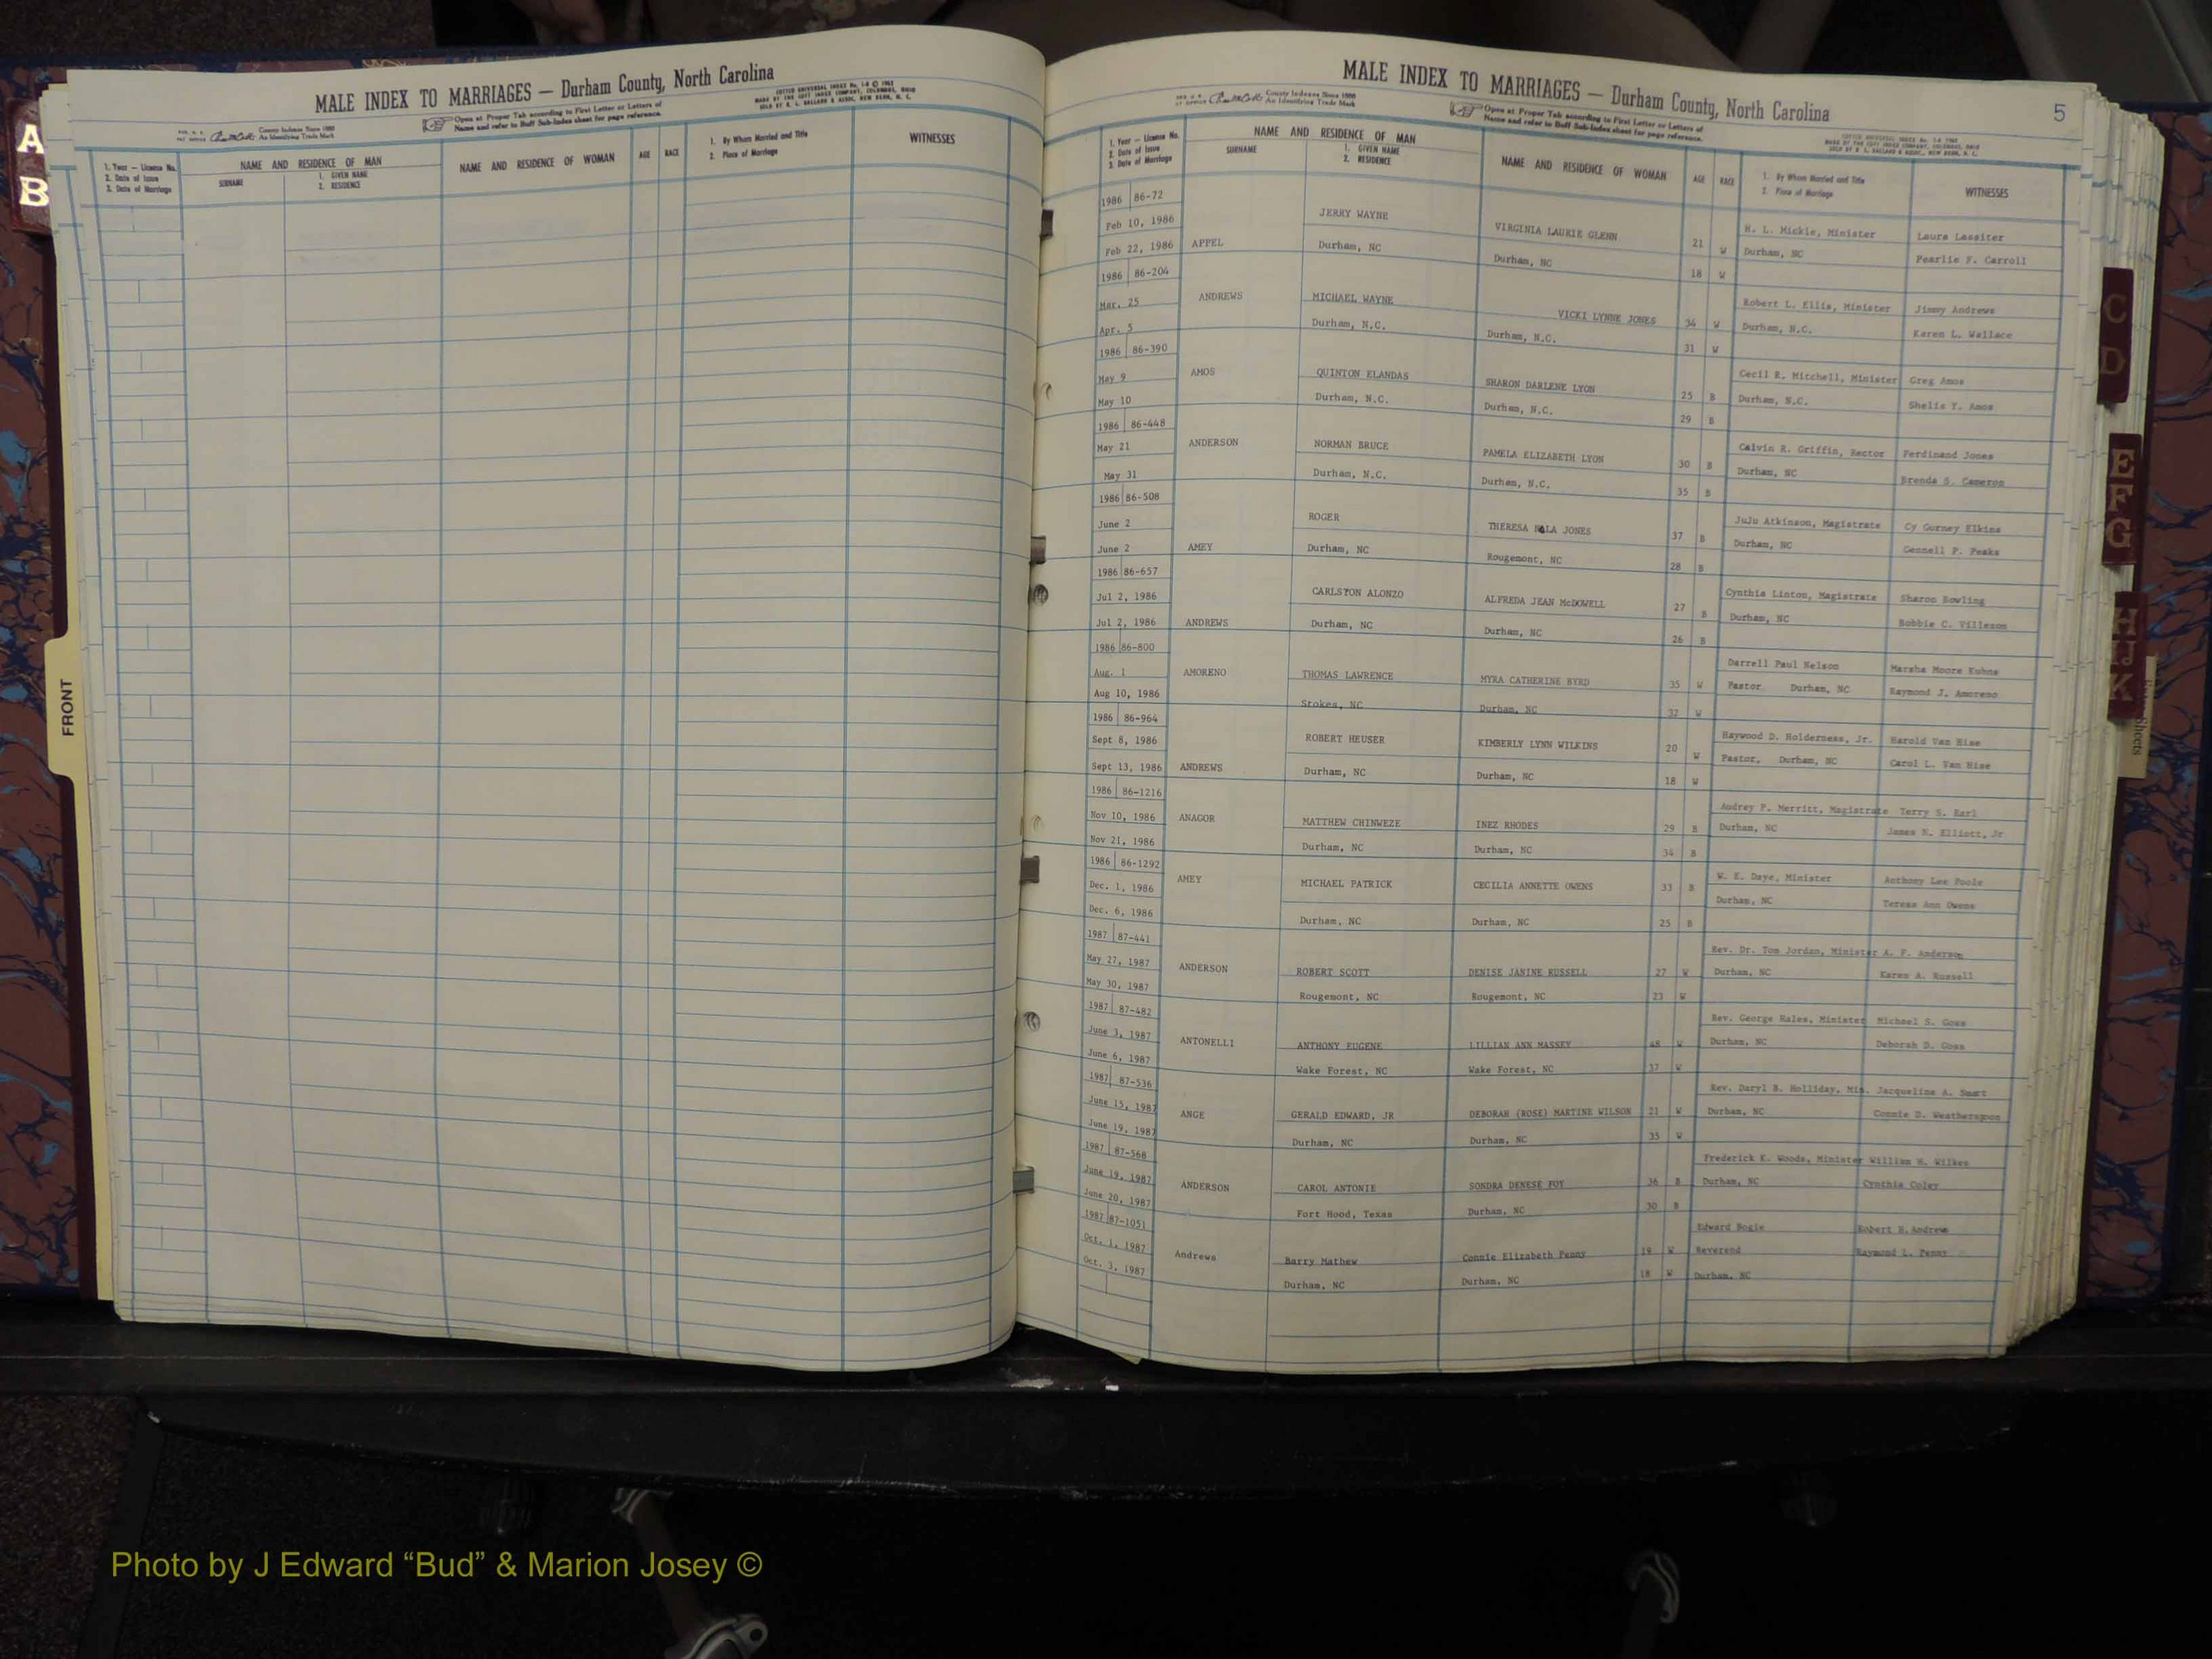 MALE INDEX TO MARRIAGES — Durham County, North Carolina
County Indexes Since 1888
An Identifying Trade Mark
Open at Proper Tab according to First Letter or Letters of
Name and refer to Buff Sub-Index sheet for page reference.
1. Year — License No.
2. Date of Issue
3. Date of Marriage
NAME AND RESIDENCE OF MAN
SURNAME
1. GIVEN NAME
2. RESIDENCE
NAME AND RESIDENCE OF WOMAN
AGE
RACE
1. By Whom Married and Title
2. Place of Marriage
WITNESSES
A
B
FRONT
MALE INDEX TO MARRIAGES — Durham County, North Carolina
5
County Indexes Since 1888
An Identifying Trade Mark
Open at Proper Tab according to First Letter or Letters of
Name and refer to Buff Sub-Index sheet for page reference.
1. Year — License No.
2. Date of Issue
3. Date of Marriage
NAME AND RESIDENCE OF MAN
SURNAME
1. GIVEN NAME
2. RESIDENCE
NAME AND RESIDENCE OF WOMAN
AGE
RACE
1. By Whom Married and Title
2. Place of Marriage
WITNESSES
1986 86-72
Feb 10, 1986 JERRY WAYNE VIRGINIA LAURIE GLENN 21 W H. L. Mickle, Minister Laura Lassiter
Feb 22, 1986 APPEL Durham, NC Durham, NC 18 W Durham, NC Pearlie F. Carroll
1986 86-204
Mar. 25 ANDREWS MICHAEL WAYNE VICKI LYNNE JONES 34 W Robert L. Ellis, Minister Jimmy Andrews
Apr. 5 Durham, N.C. Durham, N.C. 31 W Durham, N.C. Karen L. Wallace
1986 86-390
May 9 AMOS QUINTON ELANDAS SHARON DARLENE LYON 25 B Cecil R. Mitchell, Minister Greg Amos
May 10 Durham, N.C. Durham, N.C. 29 B Durham, N.C. Shelie Y. Amos
1986 86-448
May 21 ANDERSON NORMAN BRUCE PAMELA ELIZABETH LYON 30 B Calvin R. Griffin, Rector Ferdinand Jones
May 31 Durham, N.C. Durham, N.C. 35 B Durham, NC Brenda S. Cameron
1986 86-508
June 2 ROGER THERESA JONES 37 B JuJu Atkinson, Magistrate Cy Gurney Elkins
June 2 AMEY Durham, NC Rougemont, NC 28 B Durham, NC Gennell P. Peaks
1986 86-657
Jul 2, 1986 CARLSTON ALONZO ALFREDA JEAN McDOWELL 27 B Cynthia Linton, Magistrate Sharon Bowling
Jul 2, 1986 ANDREWS Durham, NC Durham, NC 26 B Durham, NC Bobbie C. Villezon
1986 86-800
Aug. 1 AMORENO THOMAS LAWRENCE MYRA CATHERINE BYRD 35 W Darrell Paul Nelson Marsha Moore Kuhne
Aug 10, 1986 Stokes, NC Durham, NC 32 W Pastor Durham, NC Raymond J. Amoreno
1986 86-964
Sept 8, 1986 ROBERT HEUSER KIMBERLY LYNN WILKINS 20 W Haywood D. Holderness, Jr. Harold Van Hise
Sept 13, 1986 ANDREWS Durham, NC Durham, NC 18 W Pastor, Durham, NC Carol L. Van Hise
1986 86-1216
Nov 10, 1986 ANAGOR MATTHEW CHINWEZE INEZ RHODES 29 B Audrey P. Merritt, Magistrate Terry S. Earl
Nov 21, 1986 Durham, NC Durham, NC 34 B Durham, NC James N. Elliott, Jr
1986 86-1292
Dec. 1, 1986 AMEY MICHAEL PATRICK CECILIA ANNETTE OWENS 33 B W. E. Daye, Minister Anthony Lee Poole
Dec. 6, 1986 Durham, NC Durham, NC 25 B Durham, NC Teresa Ann Owens
1987 87-441
May 27, 1987 ANDERSON ROBERT SCOTT DENISE JANINE RUSSELL 27 W Rev. Dr. Tom Jordan, Minister A. F. Anderson
May 30, 1987 Rougemont, NC Rougemont, NC 23 W Durham, NC Karen A. Russell
1987 87-482
June 3, 1987 ANTONELLI ANTHONY EUGENE LILLIAN ANN MASSEY 48 W Rev. George Hales, Minister Michael S. Goss
June 6, 1987 Wake Forest, NC Wake Forest, NC 37 W Durham, NC Deborah D. Goss
1987 87-536
June 15, 1987 ANGE GERALD EDWARD, JR DEBORAH (ROSE) MARTINE WILSON 21 W Rev. Daryl B. Holliday, Min. Jacqueline A. Smart
June 19, 1987 Durham, NC Durham, NC 35 W Durham, NC Connie D. Weatherspoon
1987 87-568
June 19, 1987 ANDERSON CAROL ANTONIE SONDRA DENESE FOY 36 B Frederick K. Woods, Minister William H. Wilkes
June 20, 1987 Fort Hood, Texas Durham, NC 30 B Durham, NC Cynthia Coley
1987 87-1051
Oct. 1, 1987 Andrews Barry Mathew Connie Elizabeth Penny 19 W Edward Bogle Robert H. Andrews
Oct. 3, 1987 Durham, NC Durham, NC 18 W Reverend Raymond L. Penny
Durham, NC
C
D
E
F
G
H
IJ
K
Sheets
Photo by J Edward “Bud” & Marion Josey ©